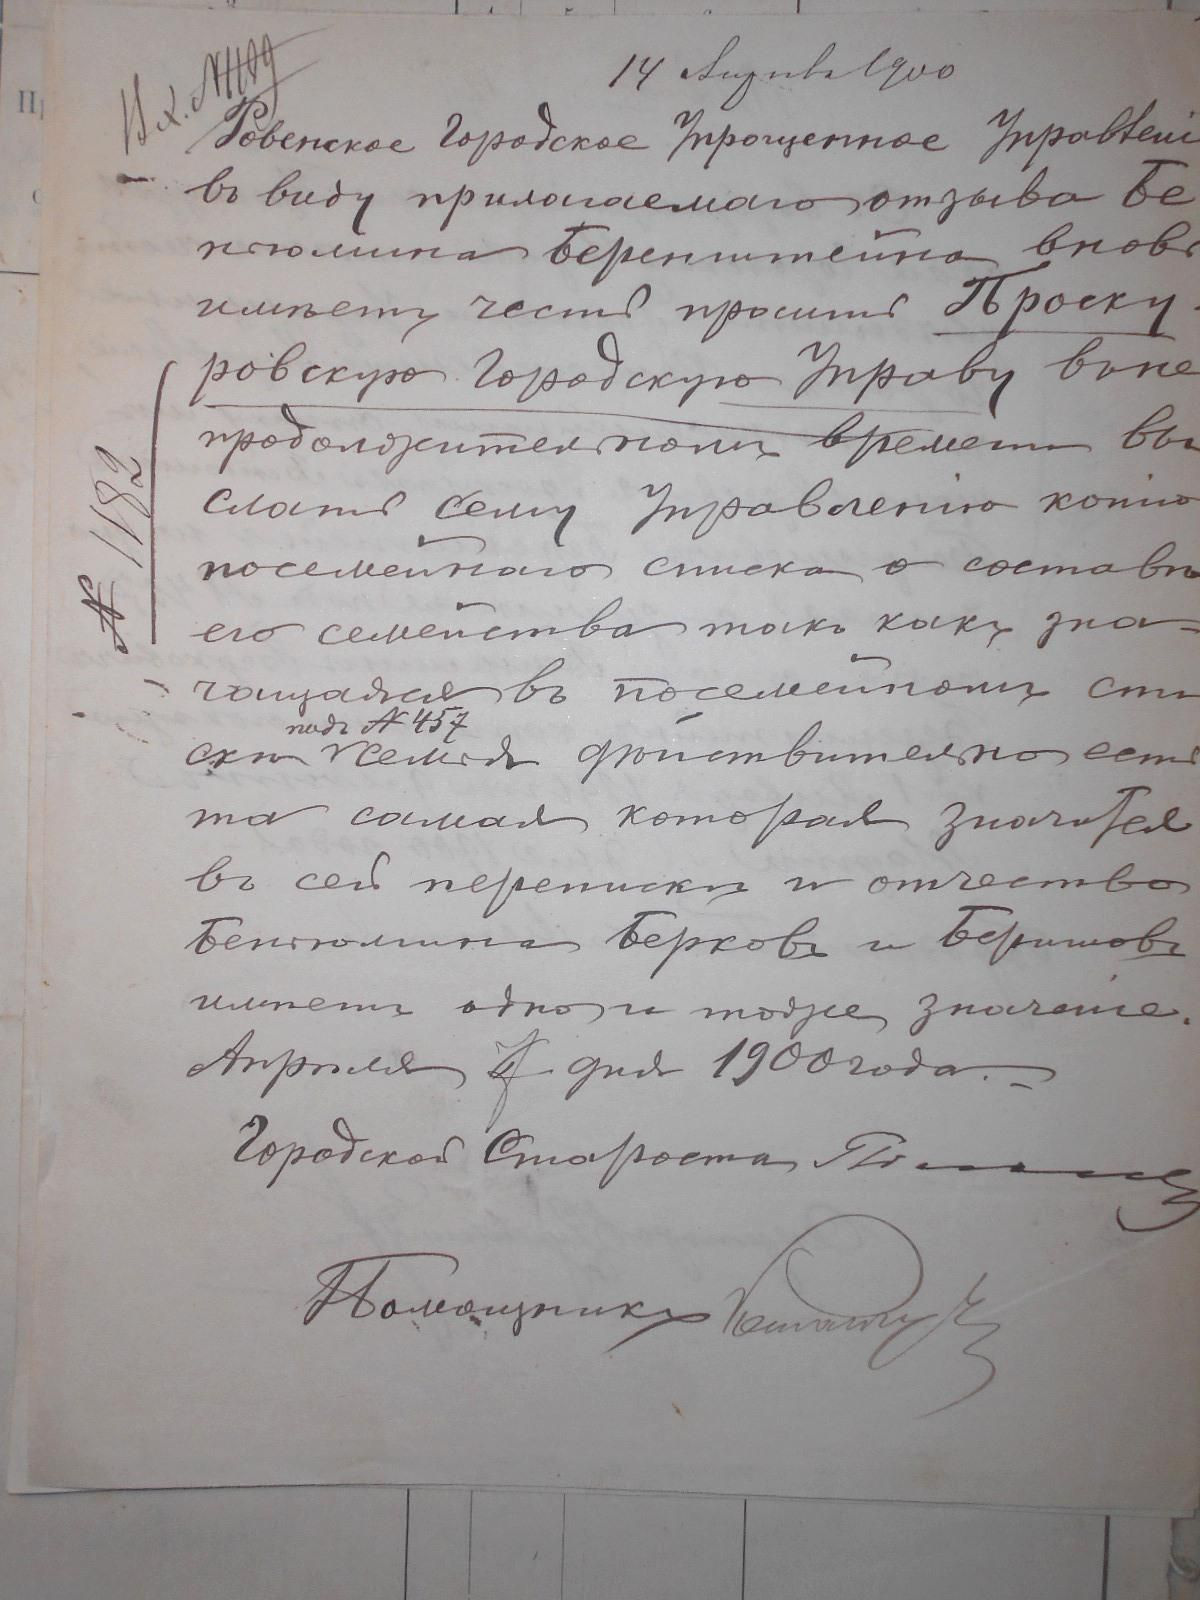 14 Апрѣля 1900
Вх.
Ровенское Городское Упрощенное Управленi
въ виду прилагаемаго отзыва Бе
ніюмина Беренштейна вновь
имѣетъ честь просить Проску-
ровскую Городскую Управу въ не
продолжительномъ времени вы
слать сему Управленію копію
посемейнаго списка о составѣ
его семейства такъ какъ зна-
чащаяся въ посемейномъ спи
подъ № 457
скѣ семья дѣйствительно есть
та самая которая значится
въ сей перепискѣ и отчество
Беніюмина Берковъ и Беришовъ
имѣетъ одно и тоже значеніе.
Апрѣля дня 1900 года.
Городской Староста
Помощникъ
№ 1182